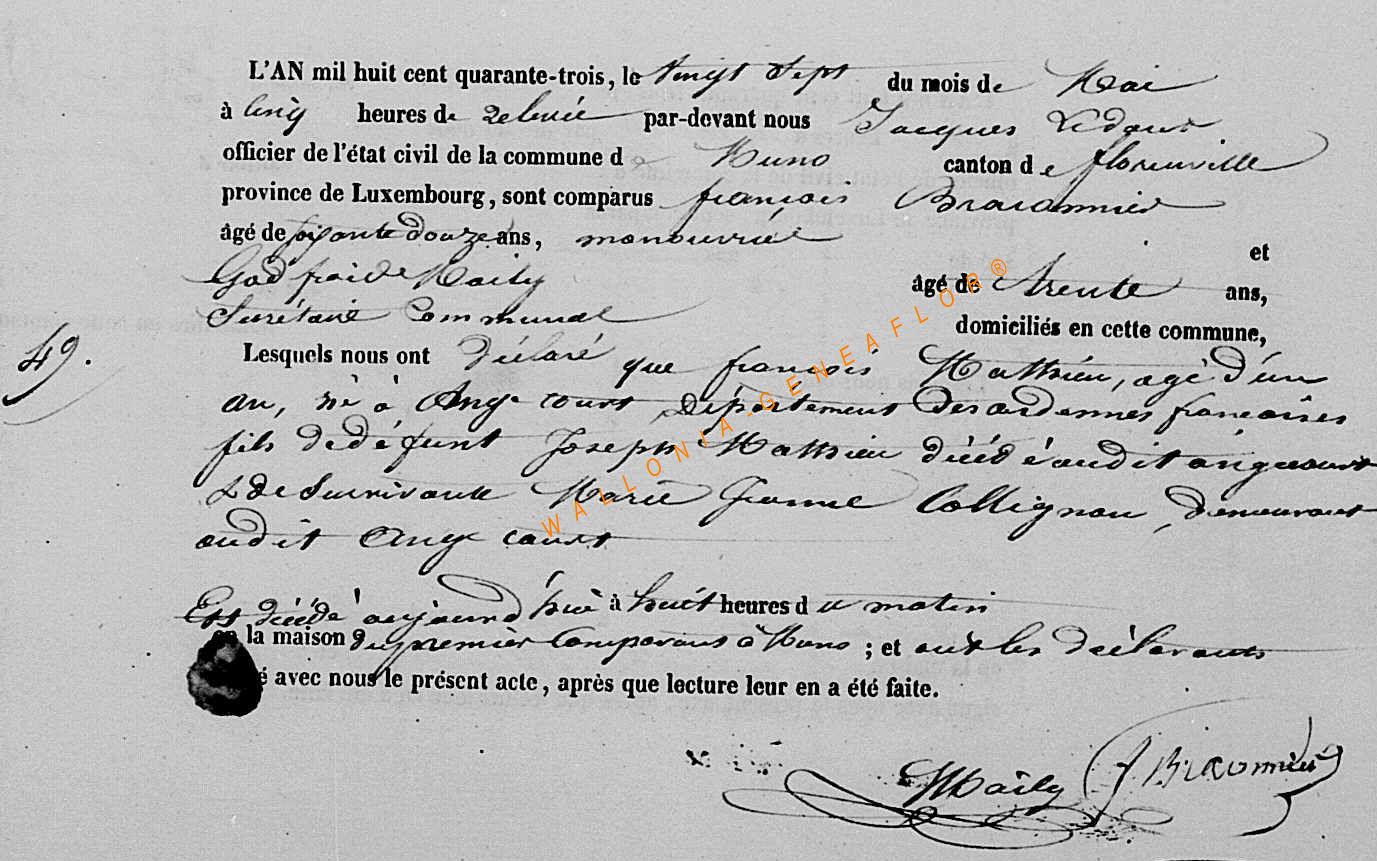 L'AN mil huit cent quarante-trois, le vingt sept du mois de Mai
à cinq heures de relevée par-devant nous Jacques Ledoux
officier de l'état civil de la commune de Muno canton de florenville
province de Luxembourg, sont comparus françois Braconnier
âgé de soixante douze ans, manouvrier et
Godfroid Maily âgé de trente ans,
Secrétaire Communal domiciliés en cette commune,
49.
Lesquels nous ont déclaré que françois Mathieu, agé d'un
an, né à Angecourt Département des ardennes françaises
fils de défunt Joseph Mathieu décédé audit angecourt
& de Survivante Marie Jeanne Collignon, demeurant
audit Angecourt
Est décédé aujourd'hui à huit heures du matin
en la maison du premier Comparant à Muno ; et ont les déclarants
é avec nous le présent acte, après que lecture leur en a été faite.
Maily f Braconnier
WALLONIA-GENEAFLOR®